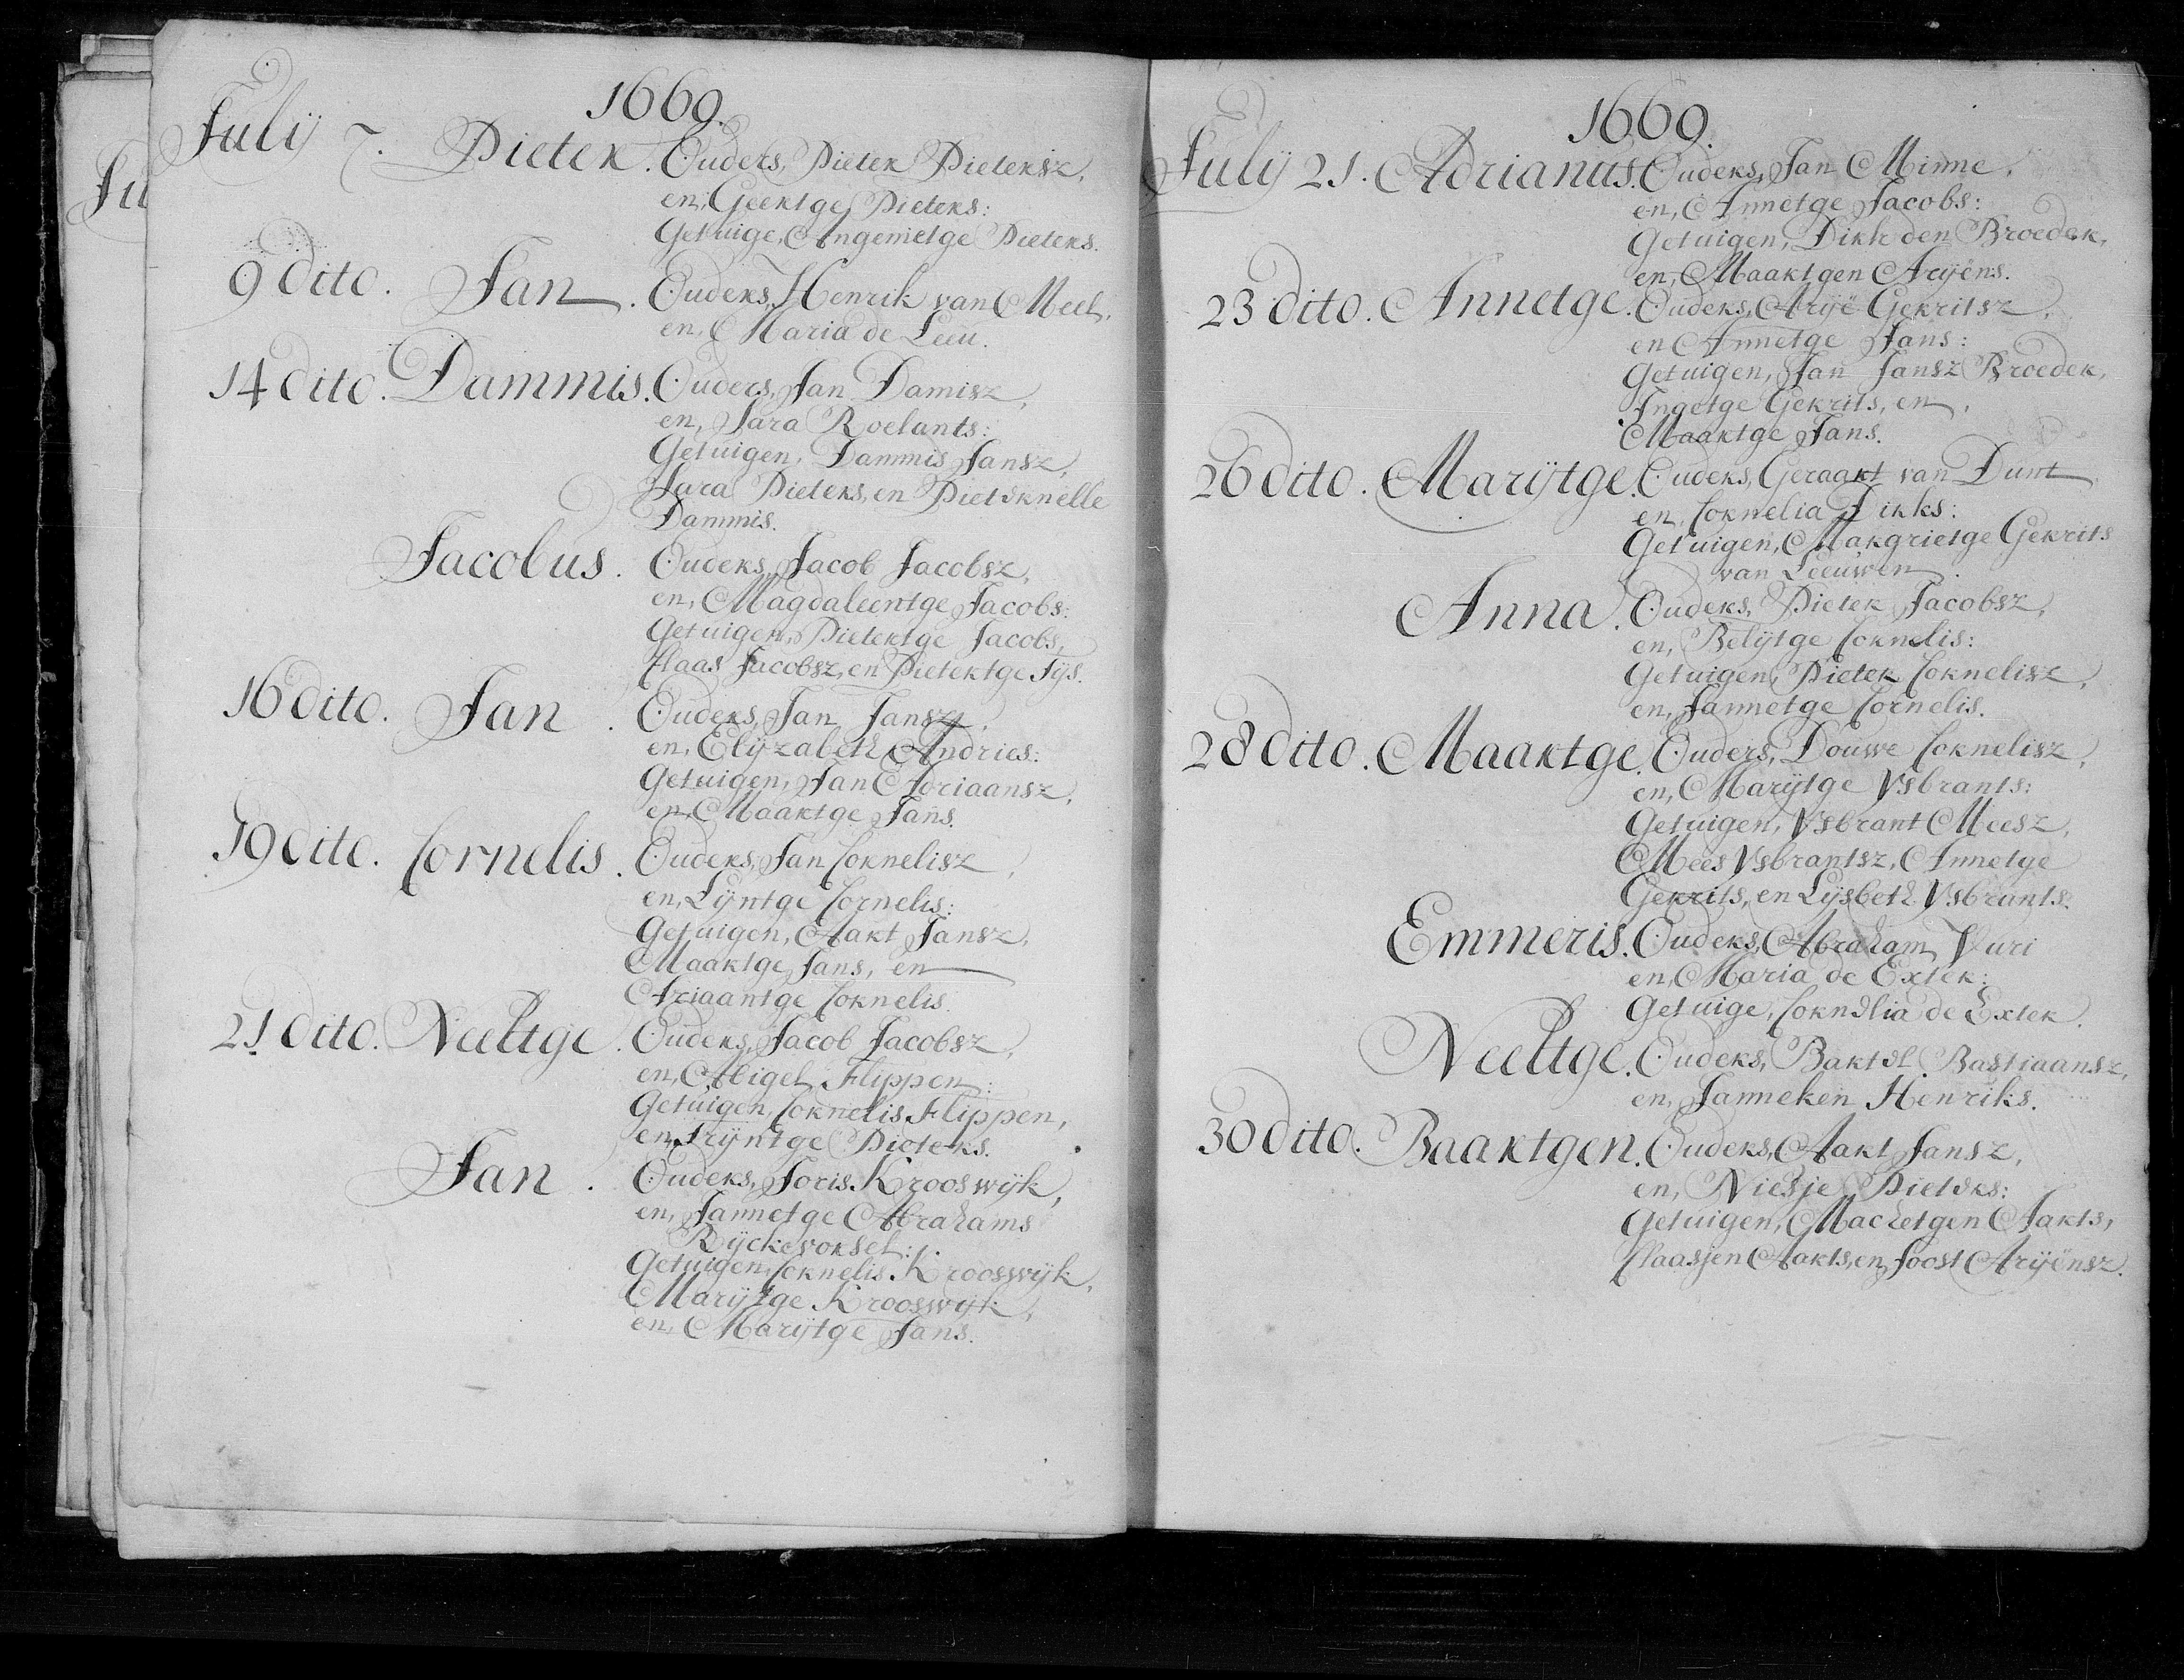 1669.
July 7. Pieter. Ouders, Pieter Pietersz,
en, Geertge Pieters:
Getuige, Angenietge Pieters.
9 dito. Jan. Ouders, Henrik van Meel,
en, Maria de Leeu.
14 dito. Dammis. Ouders, Jan Damisz,
en, Sara Roelants:
Getuigen, Dammis Jansz,
Sara Pieters, en Pieternelle
Dammis.
Jacobus. Ouders, Jacob Jacobsz,
en, Magdaleentge Jacobs:
Getuigen, Pietertge Jacobs,
Claas Jacobsz, en Pietertge Sijs.
16 dito. Jan. Ouders, Jan Jansz,
en, Elijzabeth Andries:
Getuigen, Jan Adriaansz,
en, Maartge Jans.
19 dito. Cornelis. Ouders, Jan Cornelisz,
en, Lijntge Cornelis:
Getuigen, Aart Jansz,
Maartge Jans, en
Ariaantge Cornelis.
21 dito. Neeltge. Ouders, Jacob Jacobsz,
en, Abigel Flippen:
Getuigen, Cornelis Flippen,
en, Trijntge Pieters.
Jan. Ouders, Joris Krooswijk,
en, Jannetge Abrahams
Rijckevorsel:
Getuigen, Cornelis Krooswijk,
Marijtge Krooswijk,
en, Marijtge Jans.
1669.
July 21. Adrianus. Ouders, Jan Minne,
en, Annetge Jacobs:
Getuigen, Dirk den Broeder,
en, Maartgen Arijens.
23 dito. Annetge. Ouders, Arijë Gerritsz,
en Annetge Jans:
Getuigen, Jan Jansz Broeder,
Ingetge Gerrits, en,
Maartge Jans.
26 dito. Marijtge. Ouders, Geraart van Dunt
en, Cornelia Dirks:
Getuigen, Margrietge Gerrits
van Leeuwen.
Anna. Ouders, Pieter Jacobsz,
en, Belijtge Cornelis:
Getuigen, Pieter Cornelisz,
en, Jannetge Cornelis.
28 dito. Maartge. Ouders, Douwe Cornelisz,
en, Marijtge Ysbrants:
Getuigen, Ysbrant Meesz,
Mees Ysbrantsz, Annetge
Gerrits, en Lijsbeth Ysbrants.
Emmeris. Ouders, Abraham Yuri
en, Maria de Exter:
Getuige, Cornelia de Exter.
Neeltge. Ouders, Bartel Bastiaansz,
en, Janneken Henriks.
30 dito. Baartgen. Ouders, Aart Jansz,
en, Niesje Pieters:
Getuigen, Machetgen Aarts,
Claasjen Aarts, en Joost Arijënsz.